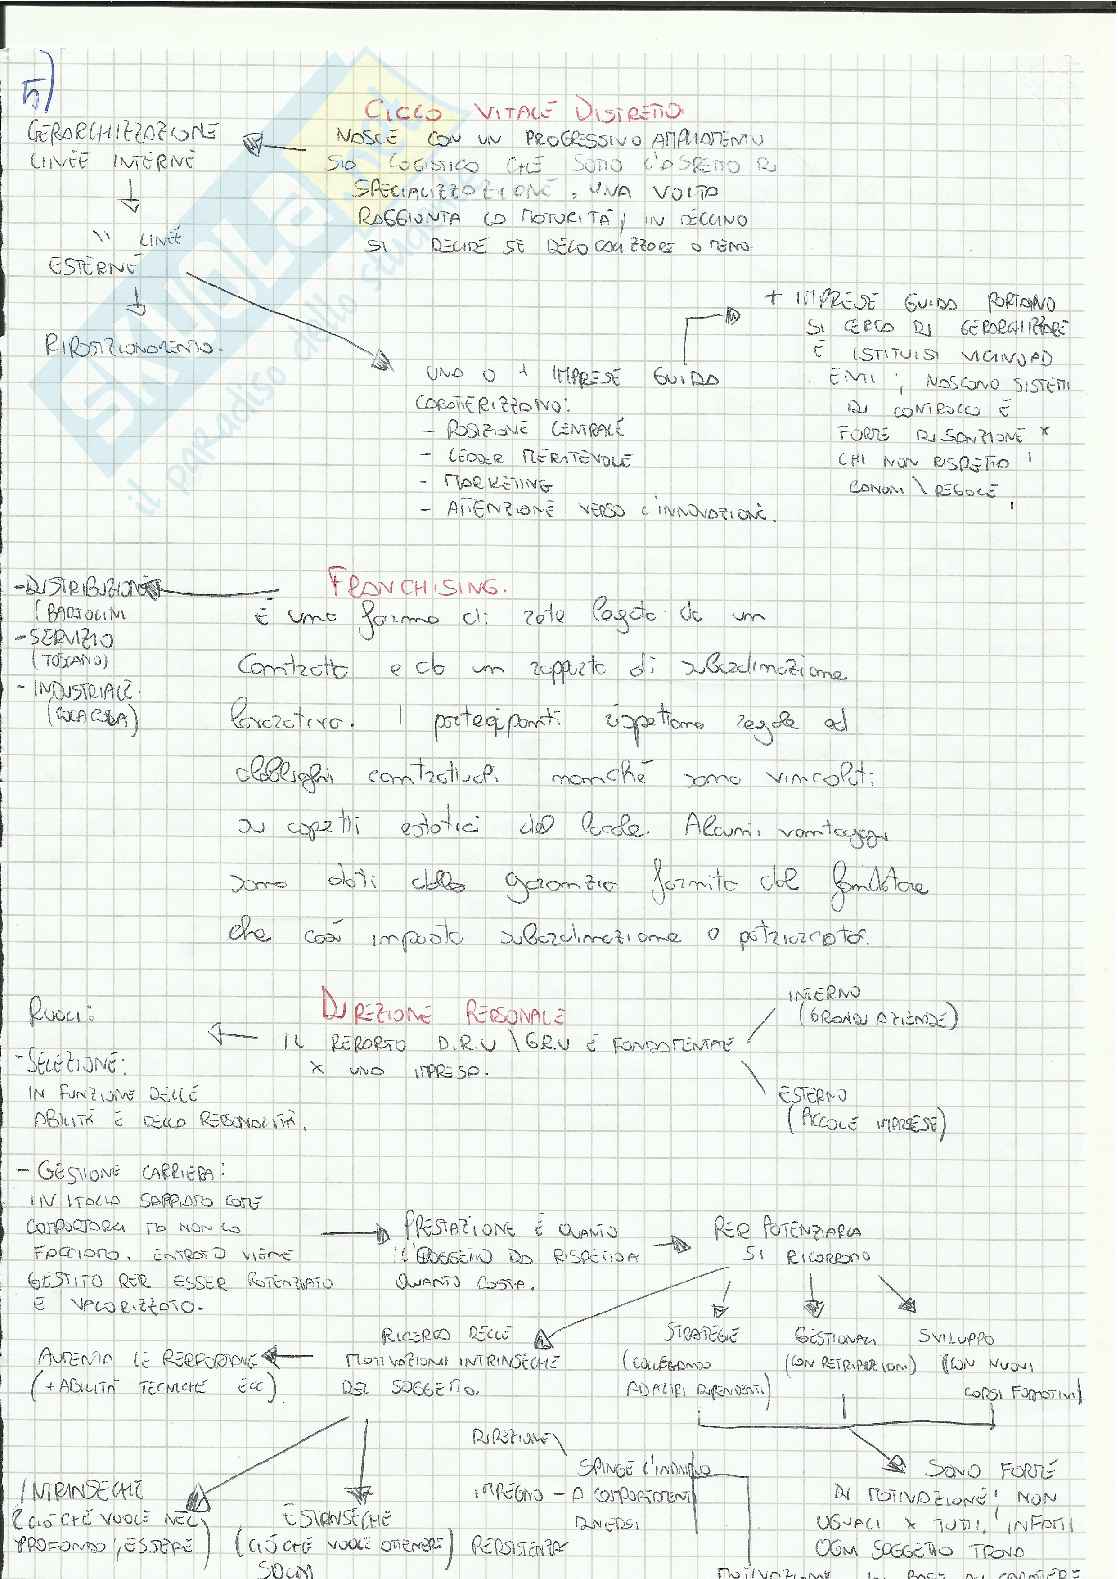 5)
CICLO VITALE DISTRETTO
NASCE CON UN PROGRESSIVO AMPLIAMENTO
SIA LOGISTICO CHE SOTTO L'ASPETTO DI
SPECIALIZZAZIONE, UNA VOLTA
RAGGIUNTA LA MATURITÀ, IN DECLINO
SI DECIDE SE DELOCALIZZARE O MENO
GERARCHIZZAZIONE
LINEE INTERNE
" LINEE
ESTERNE
RIPOSIZIONAMENTO.
UNA O + IMPRESE GUIDA
CARATTERIZZANO:
- POSIZIONE CENTRALE
- LEADER MERITEVOLE
- MARKETING
- ATTENZIONE VERSO L'INNOVAZIONE.
+ IMPRESE GUIDA PORTANO
SI CERCA DI GERARCHIZZARE
E ISTITUISI VICINO AD
ENTI; NASCONO SISTEMI
DI CONTROLLO E
FORTE DISANZIONE X
CHI NON RISPETTA I
CANONI \ REGOLE.
FRANCHISING.
- DISTRIBUZIONE
(BARTOLINI
- SERVIZIO
(TOSCANO)
- INDUSTRIALE.
(COCA COLA)
È una forma di rete legata da un
Contratto e da un rapporto di subordinazione
lavorativa. I partecipanti rispettano regole ad
obblighi contrattuali nonché sono vincolati
su aspetti estetici del locale. Alcuni vantaggi
sono dati dalla garanzia fornita dal fondatore
che così imposta subordinazione o patriarcato.
DIREZIONE PERSONALE
IL REPARTO D.R.U \ G.R.U È FONDAMENTALE
X UNA IMPRESA.
INTERNO
(GRANDI AZIENDE)
ESTERNO
(PICCOLE IMPRESE)
RUOLI:
- SELEZIONE:
IN FUNZIONE DELLE
ABILITÀ E DELLA PERSONALITÀ.
- GESTIONE CARRIERA:
IN ITALIA SAPPIAMO COME
COMPORTARCI MA NON LO
FACCIAMO. ENTRATO VIENE
GESTITO PER ESSER POTENZIATO
E VALORIZZATO.
PRESTAZIONE È QUANTO
IL SOGGETTO DA RISPETTO A
QUANTO COSTA.
PER POTENZIARLA
SI RICORRONO
RICERCA DELLE
MOTIVAZIONI INTRINSECHE
DEL SOGGETTO.
STRATEGIE
(COLLEGANDO
AD ALTRI DIPENDENTI)
GESTIONALI
(CON RETRIBUZIONI)
SVILUPPO
(CON NUOVI
CORSI FORMATIVI)
AUMENTA LE PERFORMANCE
(+ ABILITÀ TECNICHE ECC)
INTRINSECHE
(CIÒ CHE VUOLE NEL
PROFONDO, ESSERE)
ESTRINSECHE
(CIÒ CHE VUOLE OTTENERE)
DIREZIONE \
IMPEGNO -
PERSISTENZA
SPINGE L'INDIVIDUO
A COMPORTAMENTI
DIVERSI
SONO FORTE
DI MOTIVAZIONE! NON
UGUALI X TUTTI. INFATTI
OGNI SOGGETTO TROVA
MOTIVAZIONE IN BASE AL CARATTERE
SKUOLA.net
il paradiso dello studente